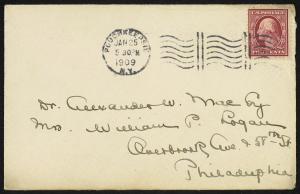 POUGHKEEPSIE
JAN 25
5 30 PM
1909
N.Y.
U.S. POSTAGE
Dr. Alexander W. Mac Coy
Mrs. William P. Logan
Overbrook Ave & 58th St
Philadelphia